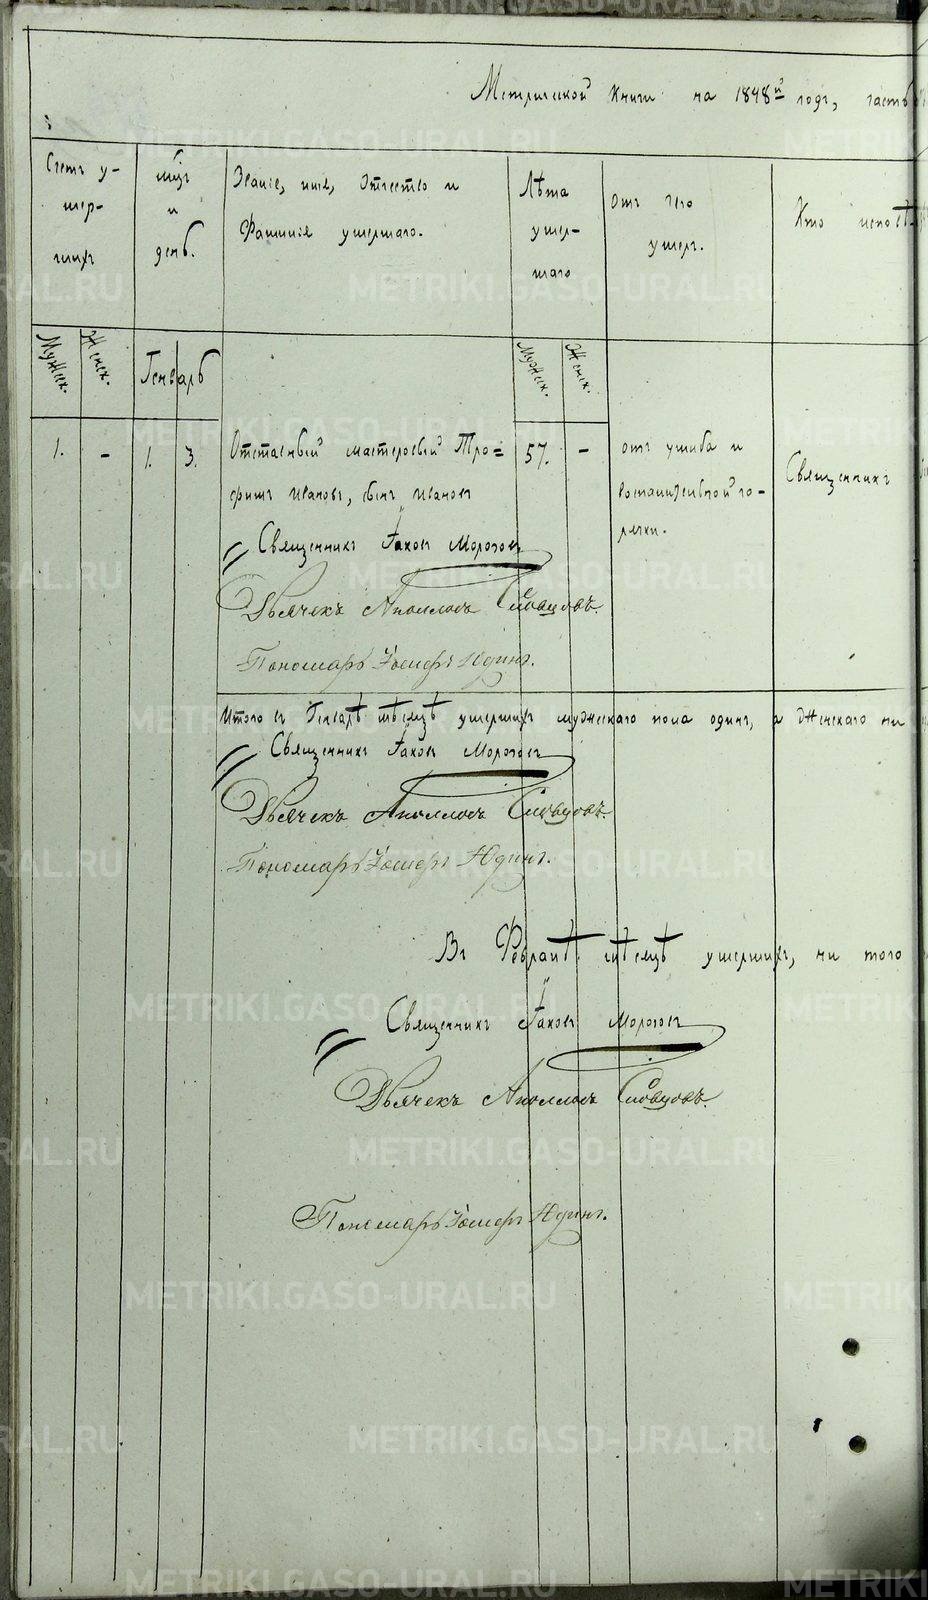 Метрической книги на 1848й годъ, часть
Счетъ у-
мер-
шихъ
мцъ
и
день.
Званіе, имя, отчество и
фамилія умершаго.
Лѣта
умер-
шаго
отъ чего
умеръ.
Кто исповѣ
Мужек.
Женск.
Генварь
Мужек.
Женск.
1.
-
1.
3.
Отставный мастеровый Тро=
фимъ Ивановъ, сынъ Ивановъ
57.
-
отъ ушиба и
воспалительной го-
рячки.
Священникъ
Священникъ Іаковъ Морозовъ
Дьячекъ Аполлосъ Словцовъ.
Пономарь Іосифъ Юдинъ.
Итого въ Генварѣ мѣсяцѣ умершихъ мужескаго пола одинъ, а женскаго ни
Священникъ Іаковъ Морозовъ
Дьячекъ Аполлосъ Словцовъ.
Пономарь Іосифъ Юдинъ.
Въ Февралѣ мѣсяцѣ умершихъ, ни того
Священникъ Іаковъ Морозовъ
Дьячекъ Аполлосъ Словцовъ.
Пономарь Іосифъ Юдинъ.
METRIKI.GASO-URAL.RU